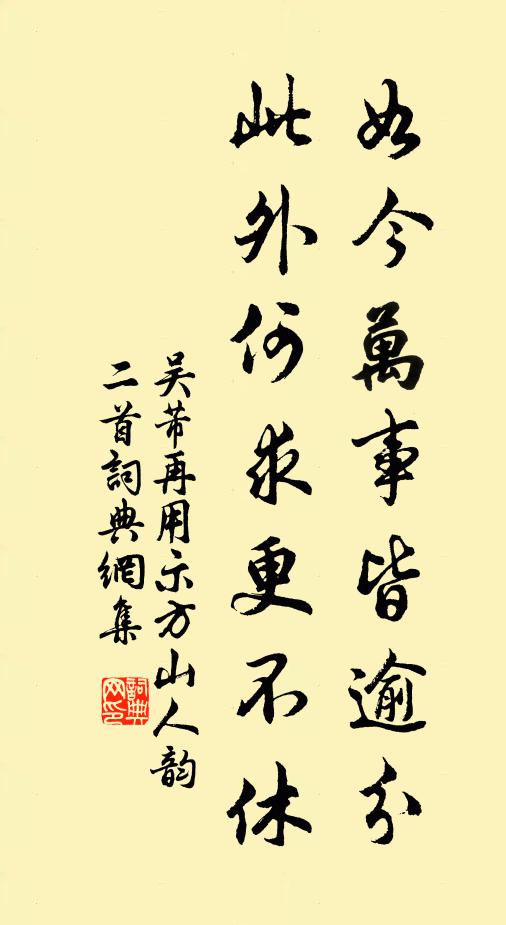 如今萬事皆逾分
此外何求更不休
吳芾再用示方山人韵
二首詞典網集
詞典
网印